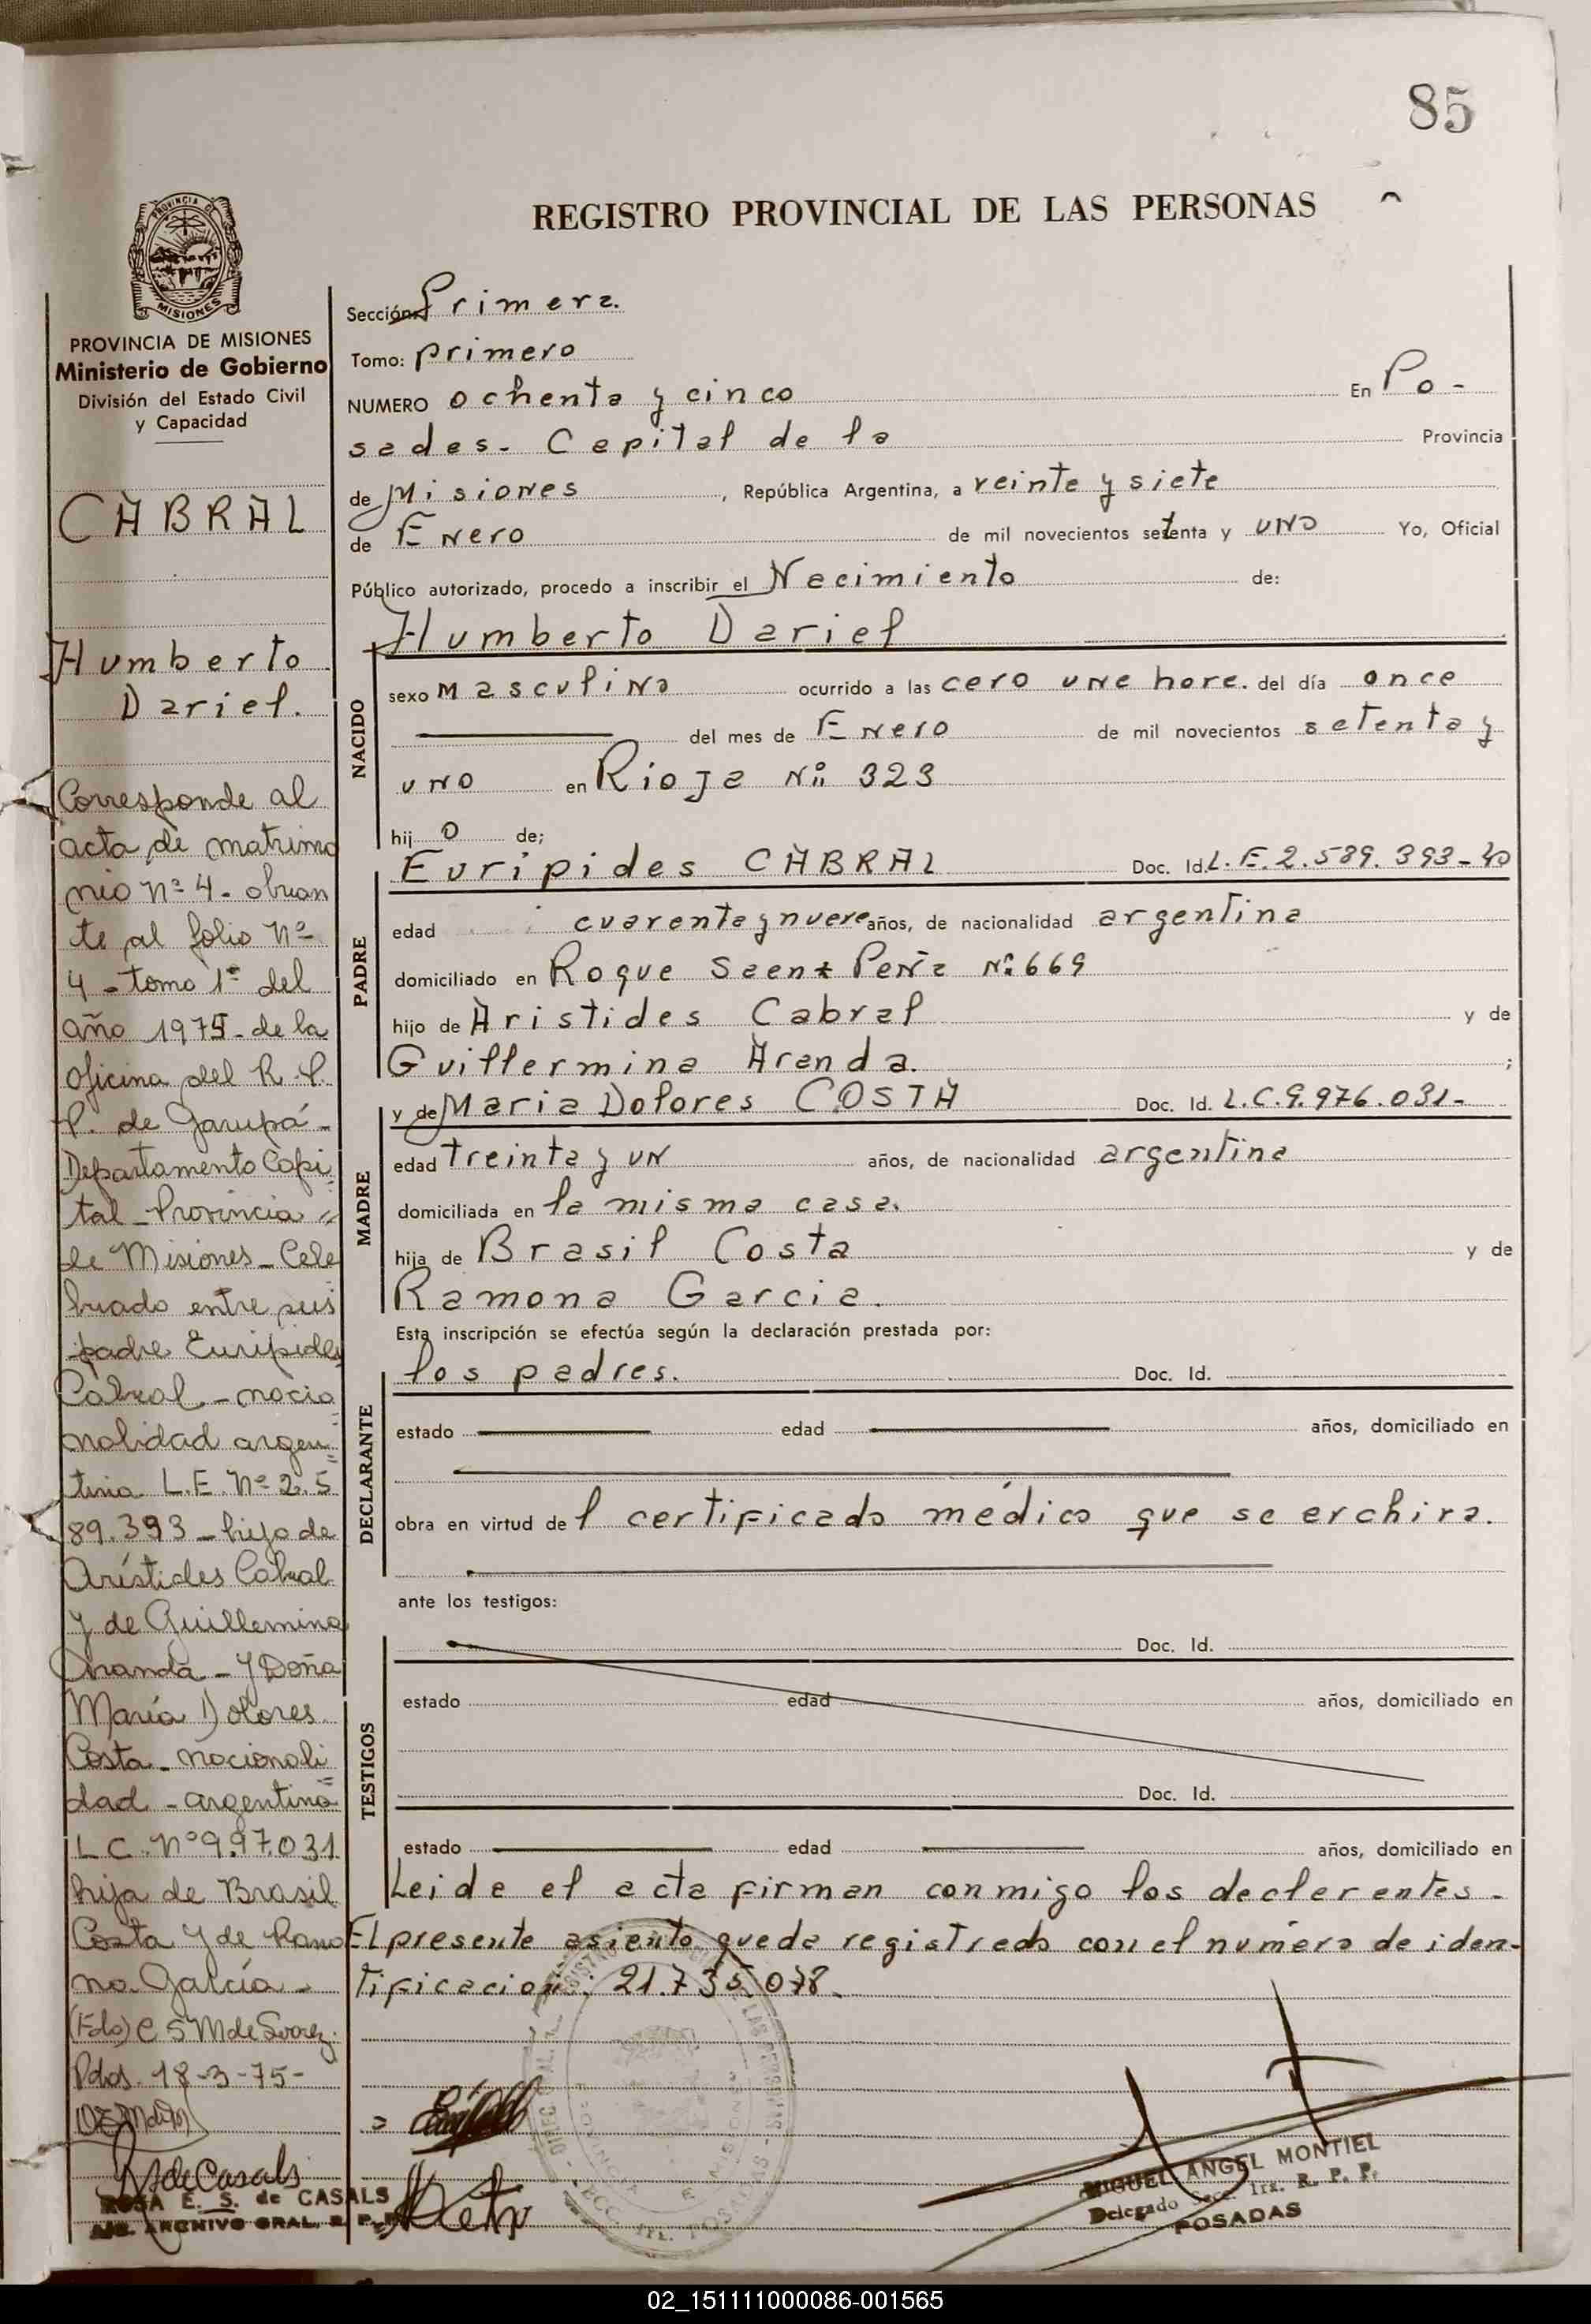 85
REGISTRO PROVINCIAL DE LAS PERSONAS
PROVINCIA DE
MISIONES
PROVINCIA DE MISIONES
Ministerio de Gobierno
División del Estado Civil
y Capacidad
CABRAL
Humberto
Dariel.
Corresponde al
acta de matrimo
nio Nº 4 - obran
te al folio Nº
4 - tomo 1º del
año 1975 - de la
oficina del R. P.
P. de Garupá -
Departamento Capi
tal - Provincia
de Misiones - Cele
brado entre sus
padre Euripides
Cabral - nacio
nalidad argen
tina L.E. Nº 2.5
89.393 - hijo de
Arístides Cabral
y de Guillermina
Aranda - y Doña
María Dolores
Costa - nacionali
dad - argentina
L C. Nº 9.97.031
hija de Brasil
Costa y de Ramo
na García -
(Fdo) C S M de Suarez.
Pdas. 18-3-75-
ROSA E. S. de CASALS
ARCHIVO GRAL. R. P.
Sección: Primera.
Tomo: primero
NUMERO ochenta y cinco En Po-
sadas. Capital de la Provincia
de Misiones, República Argentina, a veinte y siete
de Enero de mil novecientos setenta y uno Yo, Oficial
Público autorizado, procedo a inscribir el Nacimiento de:
NACIDO
Humberto Dariel
sexo masculino ocurrido a las cero una hora. del día once
del mes de Enero de mil novecientos setenta y
uno en Rioja Nº 323
hijo de;
PADRE
Euripides CABRAL Doc. Id. L.E. 2.589.393-
edad cuarenta y nueve años, de nacionalidad argentina
domiciliado en Roque Saenz Peña Nº 669
hijo de Aristides Cabral y de
Guillermina Aranda. ;
MADRE
y de Maria Dolores COSTA Doc. Id. L.C. 9.976.031-
edad treinta y un años, de nacionalidad argentina
domiciliada en la misma casa.
hija de Brasil Costa y de
Ramona Garcia.
Esta inscripción se efectúa según la declaración prestada por:
DECLARANTE
los padres. Doc. Id.
estado edad años, domiciliado en
obra en virtud del certificado médico que se archiva.
ante los testigos:
TESTIGOS
Doc. Id.
estado edad años, domiciliado en
Doc. Id.
estado edad años, domiciliado en
Leida el acta firman conmigo los declarantes -
El presente asiento queda registrado con el número de iden-
tificacion: 21.735.078.
MIGUEL ANGEL MONTIEL
Delegado Secc. 1ra. R. P. P.
POSADAS
02_151111000086-001565